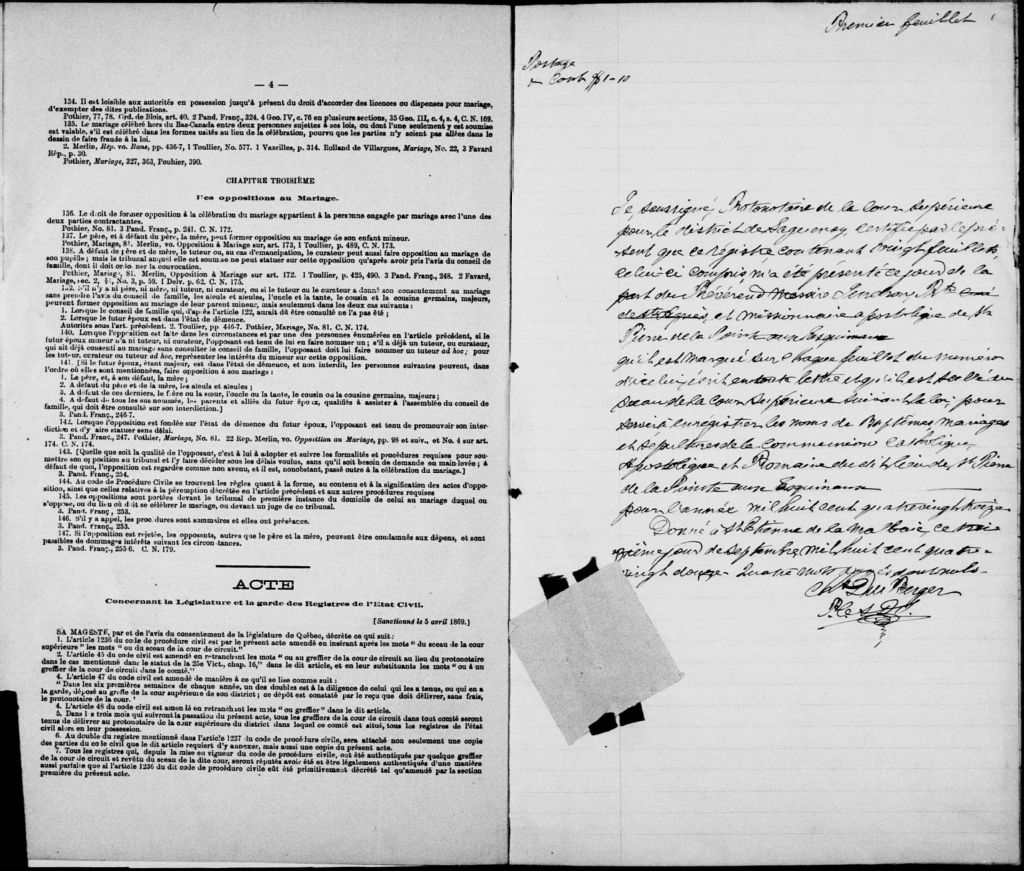 — 4 —
134. Il est loisible aux autorités en possession jusqu'à présent du droit d'accorder des licences ou dispenses pour mariage,
d'exempter des dites publications.
Pothier, 77, 78. Ord. de Blois, art. 40. 2 Pand. Franç., 324. 4 Geo. IV, c. 76 en plusieurs sections, 35 Geo. III, c. 4, s. 4, C. N. 169.
135. Le mariage célébré hors du Bas-Canada entre deux personnes sujettes à ses lois, ou dont l'une seulement y est soumise
est valable, s'il est célébré dans les formes usités au lieu de la célébration, pourvu que les parties n'y soient pas allées dans le
dessin de faire fraude à la loi.
2. Merlin, Rép. vo. Bans, pp. 436-7, 1 Toullier, No. 577. 1 Vazeilles, p. 314. Rolland de Villargues, Mariage, No. 22, 3 Favard
Rép., p. 30.
Pothier, Mariage, 327, 363, Pouhier, 390.
CHAPITRE TROISIÈME
Des oppositions au Mariage.
136. Le droit de former opposition à la célébration du mariage appartient à la personne engagée par mariage avec l'une des
deux parties contractantes.
Pothier, No. 81. 3 Pand. Franç., p. 241. C. N. 172.
137. Le père, et à défaut du père, la mère, peut former opposition au mariage de son enfant mineur.
Pothier, Mariage, 81. Merlin, vo. Opposition à Mariage sur, art. 173, 1 Toullier, p. 489, C. N. 173.
138. A défaut de père et de mère, le tuteur ou, au cas d'émancipation, le curateur peut aussi faire opposition au mariage de
son pupille; mais le tribunal auquel elle est soumise ne peut statuer sur cette opposition qu'après avoir pris l'avis du conseil de
famille, dont il doit ordonner la convocation.
Pothier, Mariage, 81. Merlin, Opposition à Mariage sur art. 172. 1 Toullier, p. 425, 490. 3 Pand. Franç., 248. 2 Favard,
Mariage, sec. 2, §1, No. 3, p. 59. 1 Delv. p. 62. C. N. 175.
139. S'il n'y a ni père, ni mère, ni tuteur, ni curateur, ou si le tuteur ou le curateur a donné son consentement au mariage
sans prendre l'avis du conseil de famille, les aïeuls et aïeules, l'oncle et la tante, le cousin et la cousine germains, majeurs,
peuvent former opposition au mariage de leur parent mineur, mais seulement dans les deux cas suivants :
1. Lorsque le conseil de famille qui, d'après l'article 122, aurait dû être consulté ne l'a pas été ;
2. Lorsque le futur époux est dans l'état de démence.
Autorités sous l'art. précédent. 2. Toullier, pp. 446-7. Pothier, Mariage, No. 81. C. N. 174.
140. Lorsque l'opposition est faite dans les circonstances et par une des personnes énumérées en l'article précédent, si le
futur époux mineur n'a ni tuteur, ni curateur, l'opposant est tenu de lui en faire nommer un ; s'il a déjà un tuteur, ou curateur,
qui ait déjà consenti au mariage sans consulter le conseil de famille, l'opposant doit lui faire nommer un tuteur ad hoc ; pour
les tuteur, curateur ou tuteur ad hoc, représenter les intérêts du mineur sur cette opposition.
141. [Si le futur époux, étant majeur, est dans l'état de démence, et non interdit, les personnes suivantes peuvent, dans
l'ordre où elles sont mentionnées, faire opposition à son mariage :
1. Le père, et, à son défaut, la mère ;
2. A défaut du père et de la mère, les aïeuls et aïeules ;
3. A défaut de ces derniers, le frère ou la sœur, l'oncle ou la tante, le cousin ou la cousine germains, majeurs ;
4. A défaut de tous les sus nommés, les parents et alliés du futur époux, qualifiés à assister à l'assemblée du conseil de
famille, qui doit être consulté sur son interdiction.]
3. Pand. Franç., 246-7.
142. Lorsque l'opposition est fondée sur l'état de démence du futur époux, l'opposant est tenu de promouvoir son inter-
diction et d'y aire statuer sans délai.
3. Pand. Franç., 247. Pothier, Mariage, No. 81. 22 Rep. Merlin, vo. Opposition au Mariage, pp. 98 et suiv., et No. 4 sur art.
174. C. N. 174.
143. [Quelle que soit la qualité de l'opposant, c'est à lui à adopter et suivre les formalités et procédures requises pour sou-
mettre son opposition au tribunal et l'y faire décider sous les délais voulus, sans qu'il soit besoin de demande en main-levée ; à
défaut de quoi, l'opposition est regardée comme non avenue, et il est, nonobstant, passé outre à la célébration du mariage.]
3. Pand. Franç., 254.
144. Au code de Procédure Civile se trouvent les règles quant à la forme, au contenu et à la signification des actes d'oppo-
sition, ainsi que celles relatives à la péremption décrétée en l'article précédent et aux autres procédures requises
145. Les oppositions sont portées devant le tribunal de première instance du domicile de celui au mariage duquel on
s'oppose, ou du lieu où doit se célébrer le mariage, ou devant un juge de ce tribunal.
3. Pand. Franç., 253.
146. S'il y a appel, les procédures sont sommaires et elles ont préséance.
3. Pand. Franç., 253.
147. Si l'opposition est rejetée, les opposants, autres que le père et la mère, peuvent être condamnés aux dépens, et sont
passibles de dommages intérêts suivant les circonstances.
3. Pand. Franç., 255-6. C. N. 179.
ACTE
Concernant la Législature et la garde des Registres de l'Etat Civil.
[Sanctionné le 5 avril 1869.]
SA MAGESTE, par et de l'avis du consentement de la législature de Québec, décrète ce qui suit :
1. L'article 1236 du code de procédure civil est par le présent acte amendé en insérant après les mots " du sceau de la cour
supérieure " les mots " ou du sceau de la cour de circuit."
2. L'article 45 du code civil est amendé en retranchant les mots " ou au greffier de la cour de circuit au lieu du protonotaire
dans le cas mentionné dans le statut de la 25e Vict., chap. 16," dans le dit article, et en leur substituant les mots " ou à un
greffier de la cour de circuit dans le comté."
4. L'article 47 du code civil est amendé de manière à ce qu'il se lise comme suit :
" Dans les six premières semaines de chaque année, un des doubles est à la diligence de celui qui les a tenus, ou qui en a
la garde, déposé au greffe de la cour supérieure de son district ; ce dépôt est constaté par le reçu que doit délivrer, sans frais,
le protonotaire de la cour. "
4. L'article 48 du code civil est amendé en retranchant les mots " ou greffier " dans le dit article.
5. Dans les trois mois qui suivront la passation du présent acte, tous les greffiers de la cour de circuit dans tout comté seront
tenus de délivrer au protonotaire de la cour supérieure du district dans lequel ce comté est situé, tous les registres de l'état
civil alors en leur possession.
6. Au double du registre mentionné dans l'article 1237 du code de procédure civile, sera attaché non seulement une copie
des parties du code civil que le dit article requiert d'y annexer, mais aussi une copie du présent acte.
7. Tous les registres qui, depuis la mise en vigueur du code de procédure civile, ont été authentiqués par quelque greffier
de la cour de circuit et revêtu du sceau de la dite cour, seront réputés avoir été et être légalement authentiqués d'une manière
aussi parfaite que si l'article 1236 du dit code de procédure civile eût été primitivement décrété tel qu'amendé par la section
première du présent acte.
Premier feuillet
Postage
& Cont $1-10
Je soussigné, Protonotaire de la Cour Supérieure
pour le district de Saguenay, certifie par le pré-
sent que ce Régistre contenant vingt feuillets
celui ci compris m'a été présenté ce jour de la
part du Révérend Messire Gendron Ptre curé
et missionnaire apostolique de St
Pierre de la Pointe aux Esquimaux
qu'il est marqué sur chaque feuillet du numéro
d'icelui écrit en toute lettre et qu'il est scellé du
Sceau de la Cour Supérieure suivant la loi, pour
servir à enregistrer les noms de Baptêmes, mariages
et sépultures de la Communion Catholique,
Apostolique et Romaine du dit lieu de St Pierre
de la Pointe aux Esquimaux
pour l'année mil huit cent quatre vingt treize
Donné à St Etienne de la Malbaie, ce trois
ième jour de Septembre mil huit cent quatre-
vingt douze - Quatre mots rayés sont nuls -
Chs Du Berger
P. C. S. D. S.